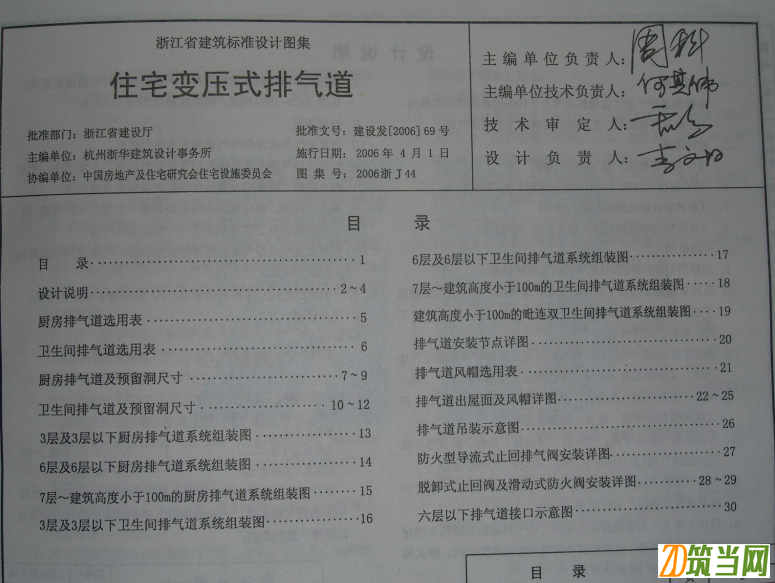 浙江省建筑标准设计图集
住宅变压式排气道
批准部门：浙江省建设厅
主编单位：杭州浙华建筑设计事务所
协编单位：中国房地产及住宅研究会住宅设施委员会
批准文号：建设发[2006]69号
施行日期：2006年4月1日
图集号：2006浙J44
主编单位负责人：
主编单位技术负责人：
技术审定人：
设计负责人：
目 录
目 录 1
设计说明 2~4
厨房排气道选用表 5
卫生间排气道选用表 6
厨房排气道及预留洞尺寸 7~9
卫生间排气道及预留洞尺寸 10~12
3层及3层以下厨房排气道系统组装图 13
6层及6层以下厨房排气道系统组装图 14
7层~建筑高度小于100m的厨房排气道系统组装图 15
3层及3层以下卫生间排气道系统组装图 16
6层及6层以下卫生间排气道系统组装图 17
7层~建筑高度小于100m的卫生间排气道系统组装图 18
建筑高度小于100m的毗连双卫生间排气道系统组装图 19
排气道安装节点详图 20
排气道风帽选用表 21
排气道出屋面及风帽详图 22~25
排气道吊装示意图 26
防火型导流式止回排气阀安装详图 27
脱卸式止回阀及滑动式防火阀安装详图 28~29
六层以下排气道接口示意图 30
目 录
筑当网